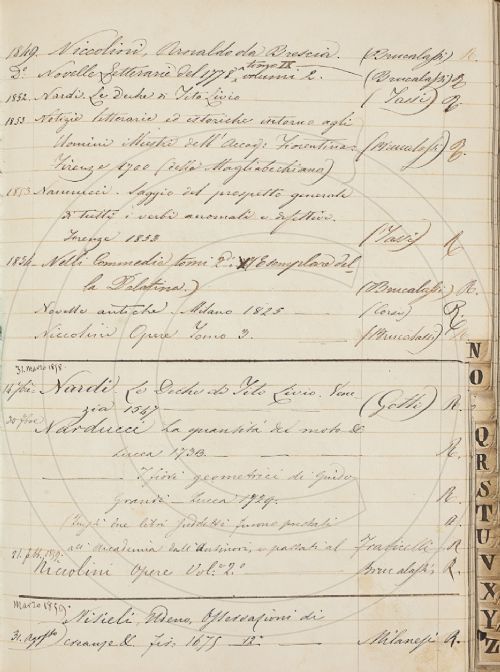 1849. Niccolini, Arnaldo da Brescia. (Brucalassi) R.
D.º Novelle Letterarie del 1778, tomo IX volumi 2. (Brucalassi) R
1852. Nardi. Le Deche di Tito Livio (Tassi) R.
1853 Notizie letterarie ed istoriche intorno agli
Uomini illustri dell'Accad. Fiorentina (Brucalassi) R.
Firenze 1700 (della Magliabechiana)
1853 Nannucci. Saggio del prospetto generale
di tutti i verbi anomali e difettivi
Firenze 1853 (Tassi) R
1854 Nelli Commedie tomi 2: (Esemplare del
la Palatina.) (Brucalassi) R.
Novelle antiche. Milano 1825 — R.
Niccolini Opere Tomo 3. — (Brucalassi)
31. Marzo 1858.
Nardi Le Deche di Tito Livio. Vene
zia 1547 (Gotti) R.
Narducci La quantità del moto &
Lucca 173 — R.
— I fiori geometrici di Guido
Grandi. Lucca 1729. R.
(Dugli due libri suddetti furono prestati R.
all'Accademia dall' e passati al Fraticelli R
Niccolini Opere Vol.º 2.º Brucalassi, R.
Marzo 1859.
Nisieli, Udeno, Osservazioni di
31. Agosto creanze & fir. 1675 Milanesi R.
N
O
Q
R
S
T
U
V
X
Y
Z